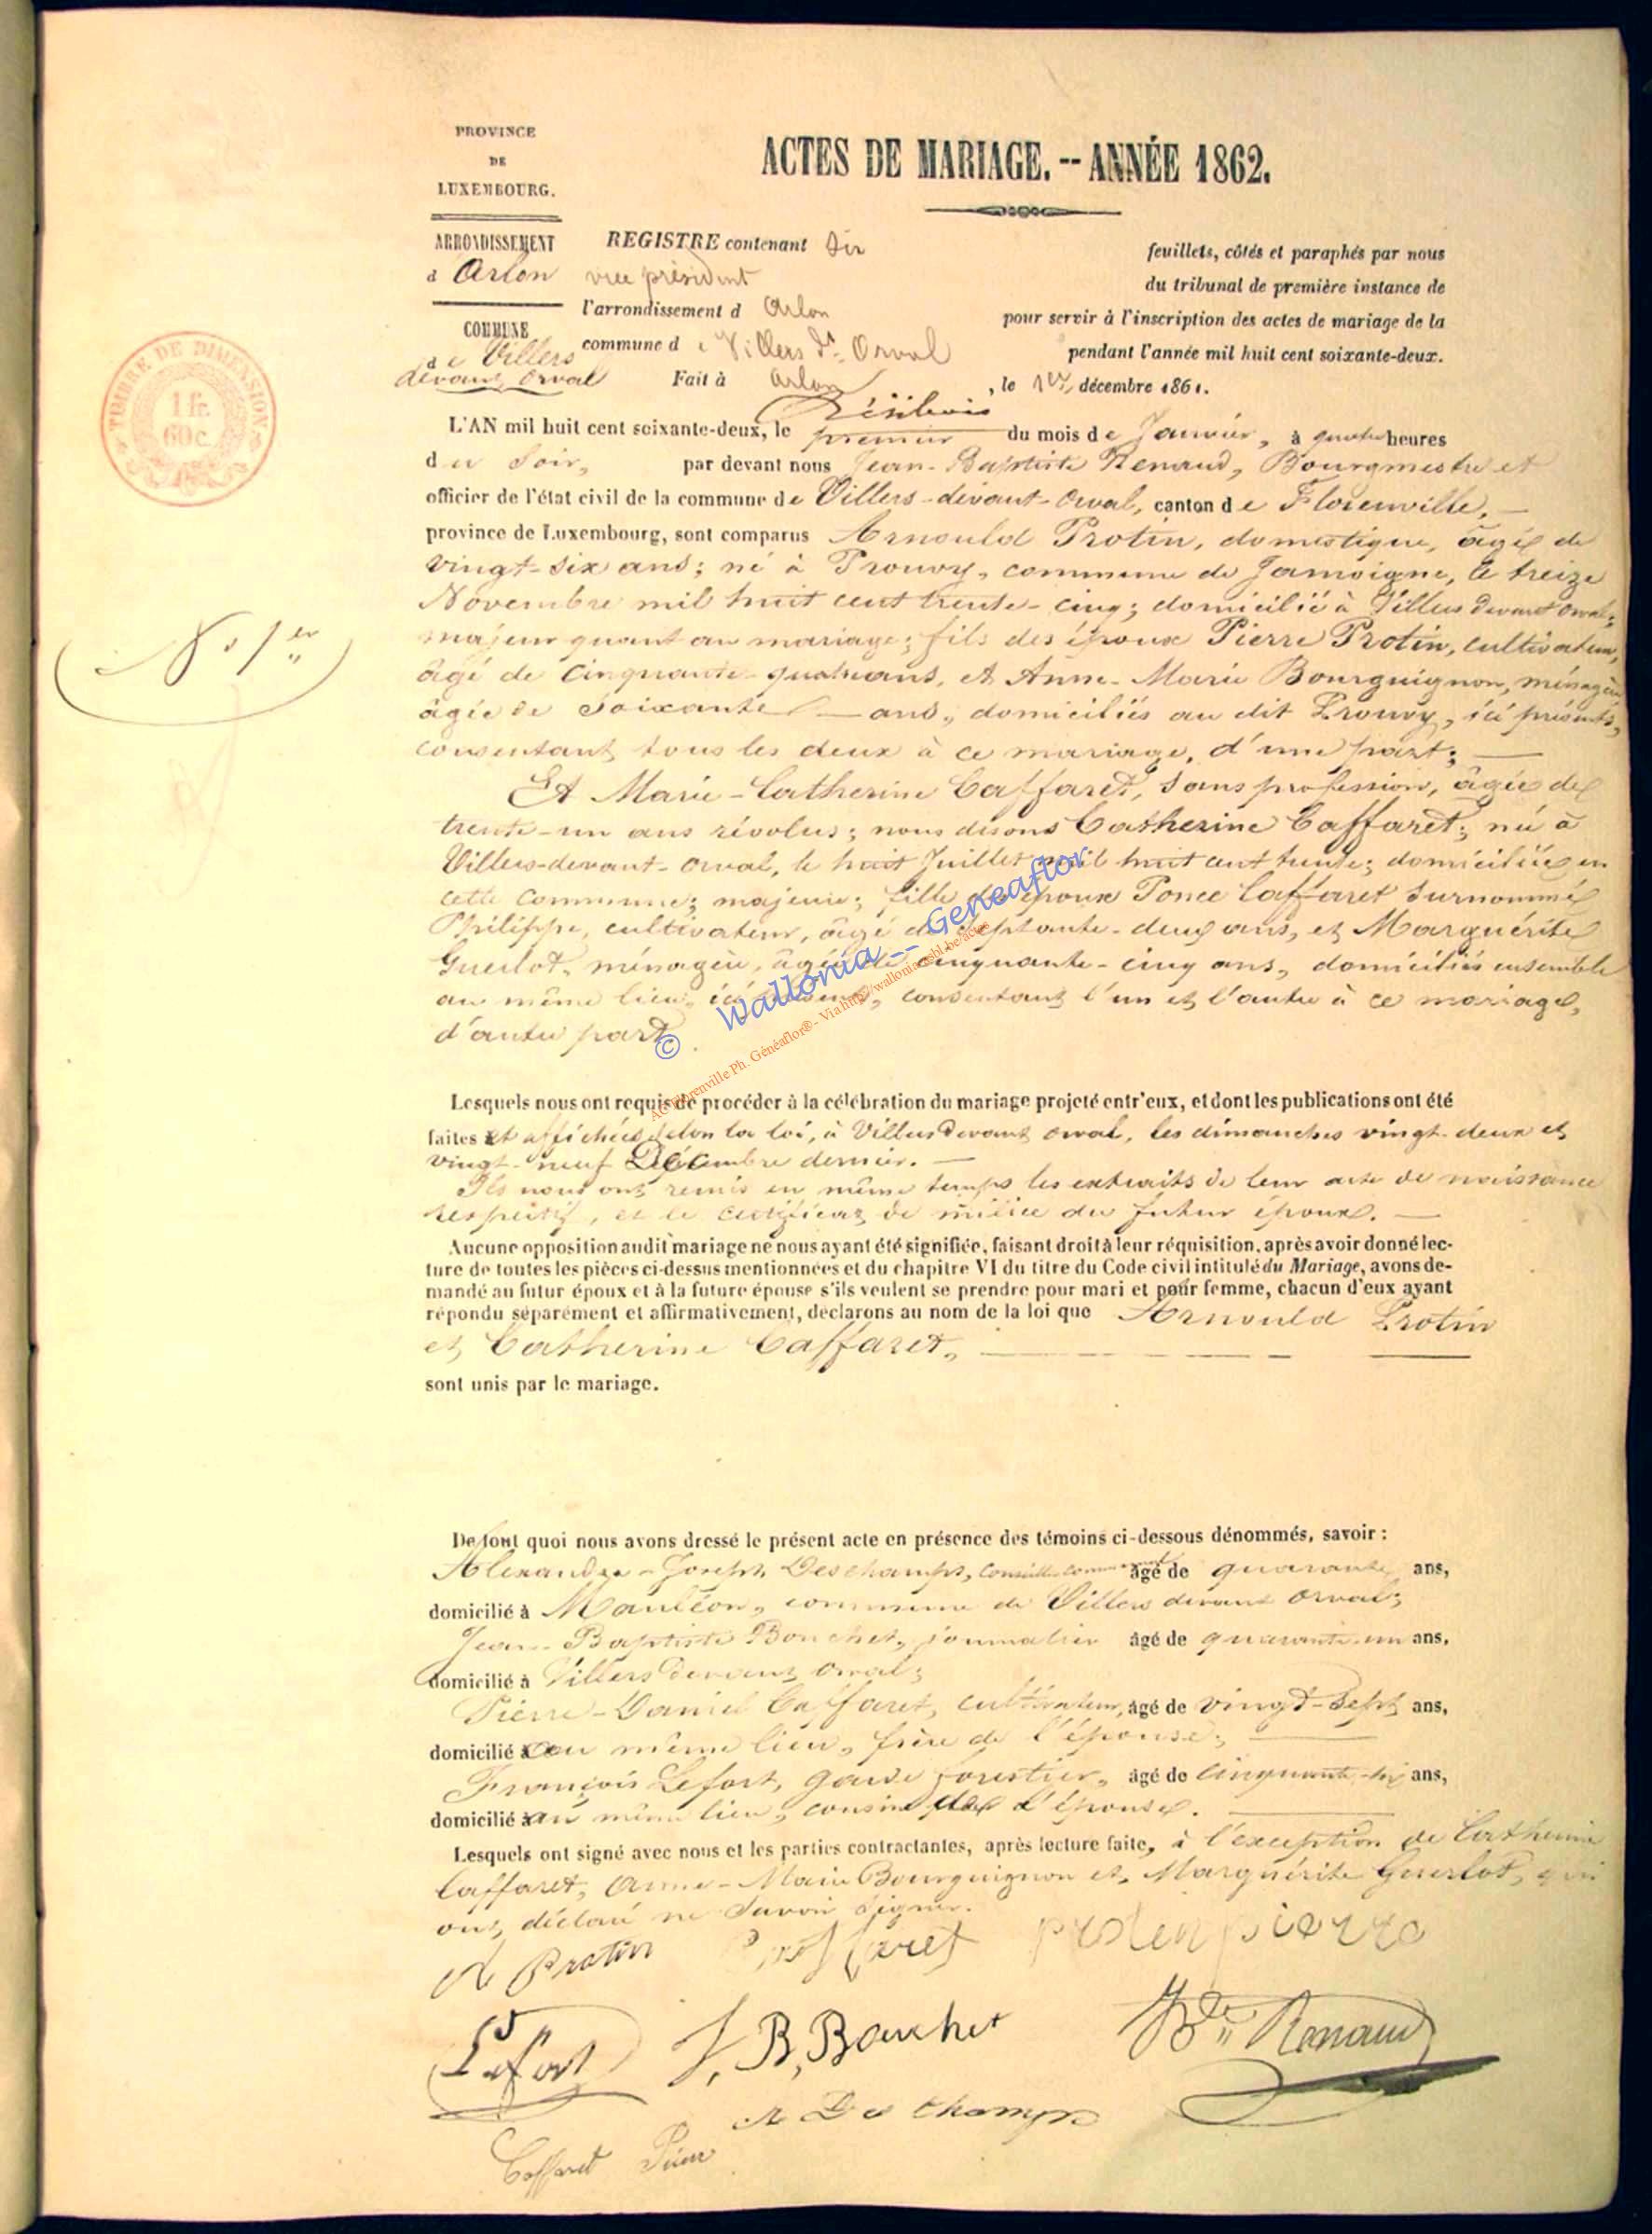 PROVINCE
DE
LUXEMBOURG.
ARRONDISSEMENT
d Arlon
COMMUNE
de Villers
devant Orval
ACTES DE MARIAGE. -- ANNÉE 1862.
REGISTRE contenant dix feuillets, côtés et paraphés par nous
vice président du tribunal de première instance de
l'arrondissement d Arlon pour servir à l'inscription des actes de mariage de la
commune de Villers dt Orval pendant l'année mil huit cent soixante-deux.
Fait à Arlon, le 1er décembre 1861.
TIMBRE DE DIMENSION
1 fr.
60 c.
L'AN mil huit cent soixante-deux, le premier du mois de Janvier, à quatre heures
du soir, par devant nous Jean-Baptiste Renaud, Bourgmestre et
officier de l'état civil de la commune de Villers-devant-Orval, canton de Florenville,
province de Luxembourg, sont comparus Arnould Protin, domestique, âgé de
vingt-six ans; né à Prouvy, commune de Jamoigne, le treize
Novembre mil huit cent trente-cinq; domicilié à Villers devant Orval;
majeur quant au mariage; fils des époux Pierre Protin, cultivateur,
âgé de cinquante-quatre ans, et Anne-Marie Bourguignon, ménagère
âgée de soixante ans, domiciliés au dit Prouvy, ici présents,
consentant tous les deux à ce mariage, d'une part;
N° 1er
Et Marie-Catherine Caffaret, sans profession, âgée de
trente-un ans révolus; nous disons Catherine Caffaret; née à
Villers-devant-Orval, le huit Juillet mil huit cent trente; domiciliée en
cette commune; majeure; fille des époux Ponce Caffaret surnommé
Philippe, cultivateur, âgé de septante-deux ans, et Marguérite
Guerlot, ménagère, âgée de cinquante-cinq ans, domiciliés ensemble
au même lieu, ici présents, consentant l'un et l'autre à ce mariage,
d'autre part.
© Wallonia -- Geneaflor
AC Florenville Ph. Généaflor® - Via http://walloniasbl.be/actes
Lesquels nous ont requis de procéder à la célébration du mariage projeté entr'eux, et dont les publications ont été
faites et affichées selon la loi, à Villers devant Orval, les dimanches vingt-deux et
vingt-neuf Décembre dernier.
Ils nous ont remis en même temps les extraits de leur acte de naissance
respectif, et le certificat de milice du futur époux.
Aucune opposition audit mariage ne nous ayant été signifiée, faisant droit à leur réquisition, après avoir donné lec-
ture de toutes les pièces ci-dessus mentionnées et du chapitre VI du titre du Code civil intitulé du Mariage, avons de-
mandé au futur époux et à la future épouse s'ils veulent se prendre pour mari et pour femme, chacun d'eux ayant
répondu séparément et affirmativement, déclarons au nom de la loi que Arnould Protin
et Catherine Caffaret,
sont unis par le mariage.
De tout quoi nous avons dressé le présent acte en présence des témoins ci-dessous dénommés, savoir :
Alexandre-Joseph Deschamps, conseiller communal âgé de quarante ans,
domicilié à Mauléon, commune de Villers devant Orval;
Jean-Baptiste Bouchet, journalier âgé de quarante-un ans,
domicilié à Villers devant Orval;
Pierre-Daniel Caffaret, cultivateur, âgé de vingt-sept ans,
domicilié au même lieu, frère de l'épouse;
François Lefort, garde forestier, âgé de cinquante-six ans,
domicilié au même lieu, cousin de l'épouse.
Lesquels ont signé avec nous et les parties contractantes, après lecture faite, à l'exception de Catherine
Caffaret, Anne-Marie Bourguignon et Marguérite Guerlot, qui
ont déclaré ne savoir signer.
A Protin Caffaret protin pierre
Lefort J, B, Bouchet JBte Renaud
A Deschamps
Caffaret Pierre